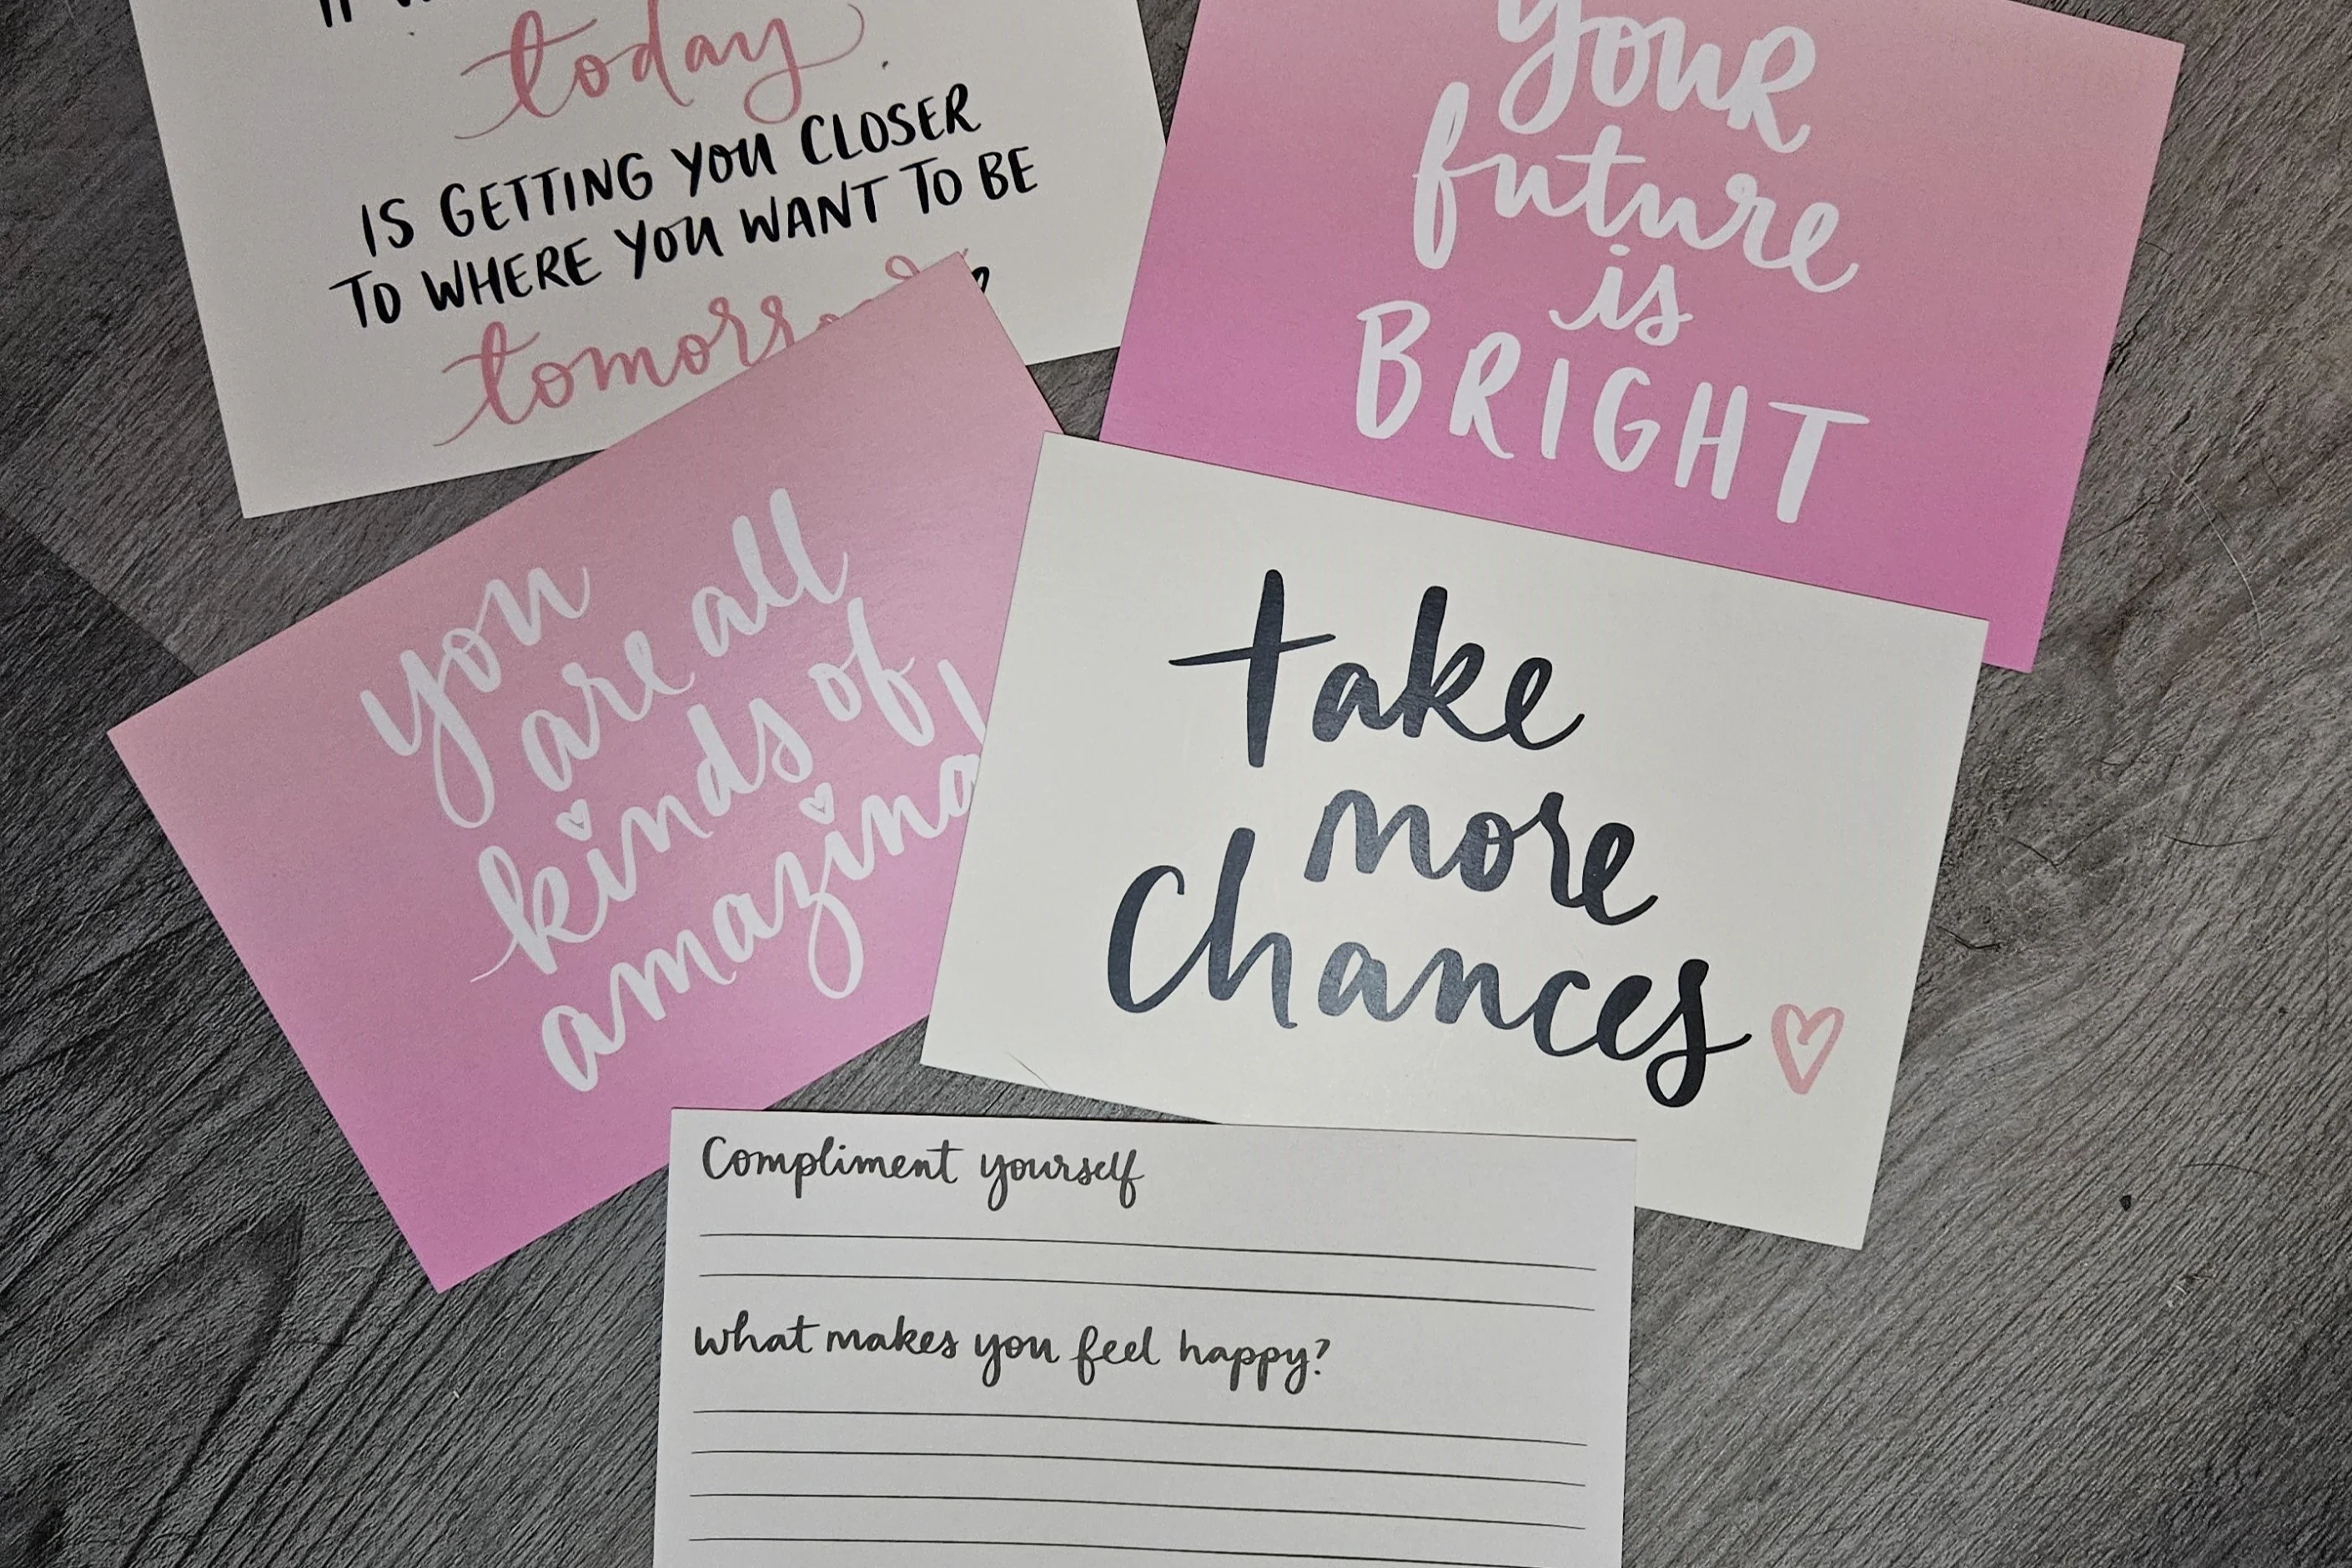 today
IS GETTING YOU CLOSER
TO WHERE YOU WANT TO BE
your
future
is
BRIGHT
you
are all
kinds of
amazing!
take
more
Chances
Compliment yourself
What makes you feel happy?